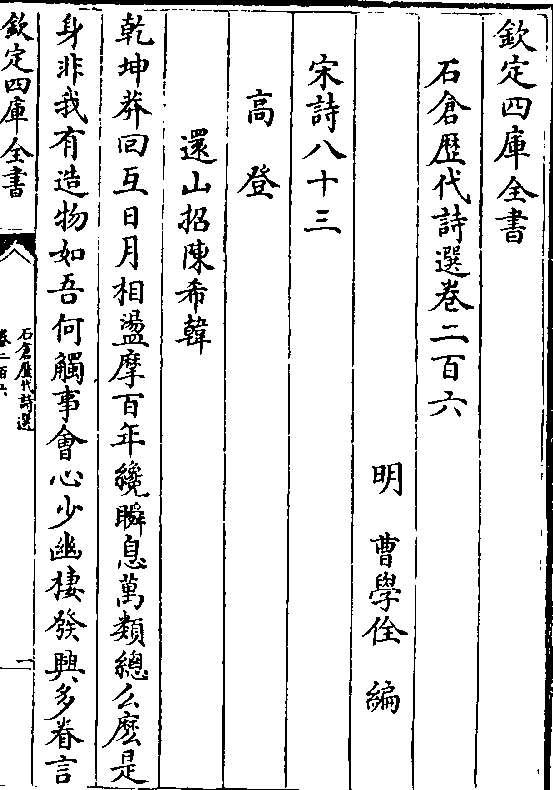 欽定四庫全書
石倉歴代詩選巻二百六
明 曹學佺 編
宋詩八十三
高登
還山招陳希韓
乾坤莽回互日月相盪摩百年纔瞬息萬類總么麽是
身非我有造物如吾何觸事會心少幽棲發興多眷言
欽定四庫全書
石倉歴代詩選
卷二百六
一